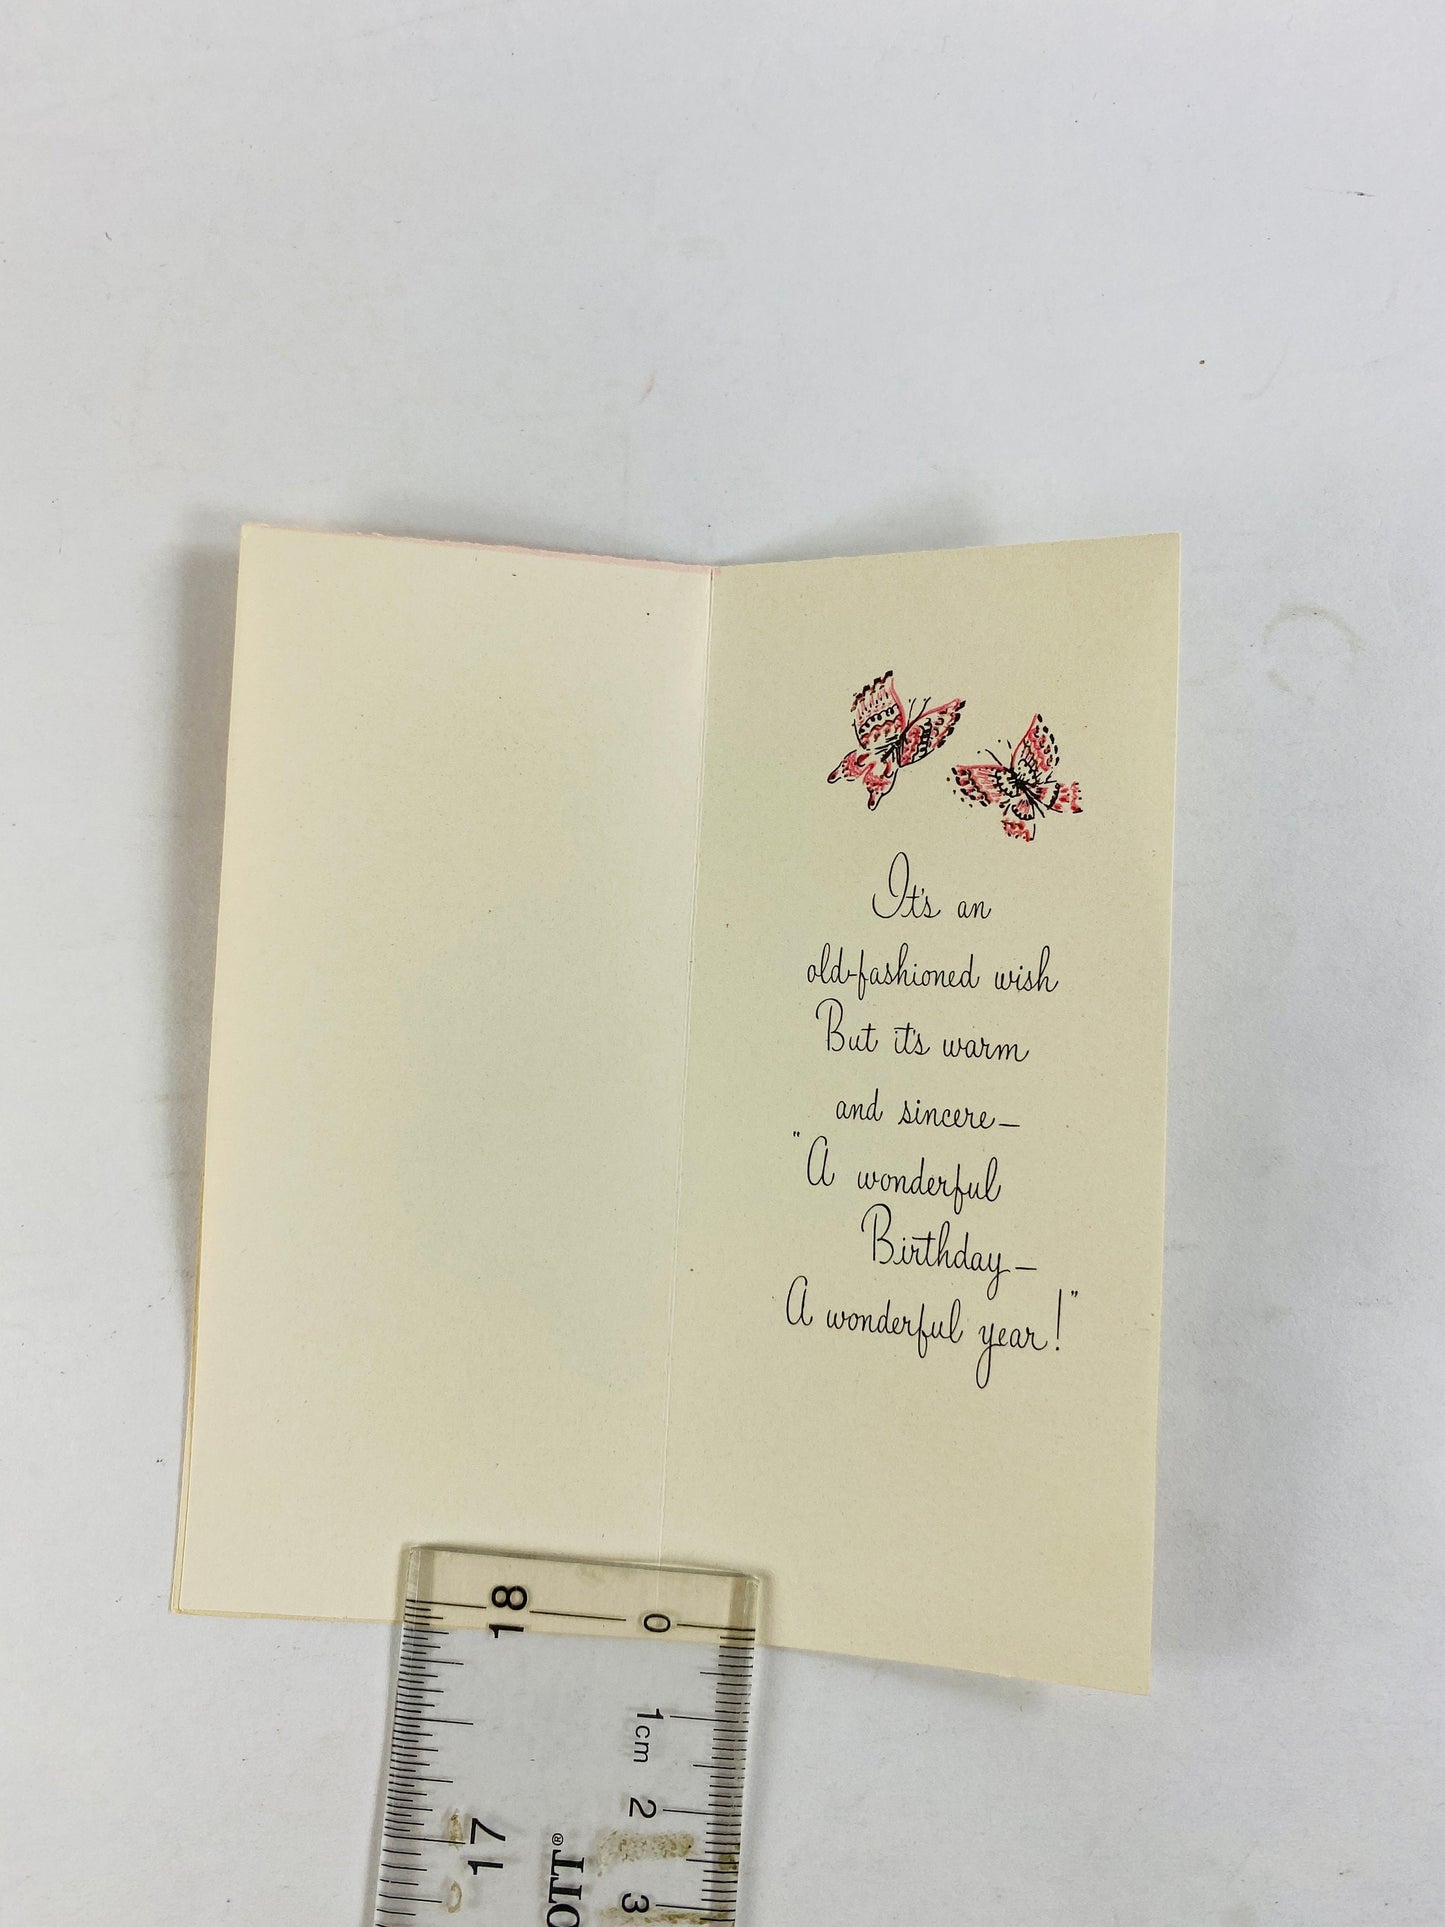 It's an
old-fashioned wish
But it's warm
and sincere—
"A wonderful
Birthday—
A wonderful year!"
18
0
1cm
2
17
3